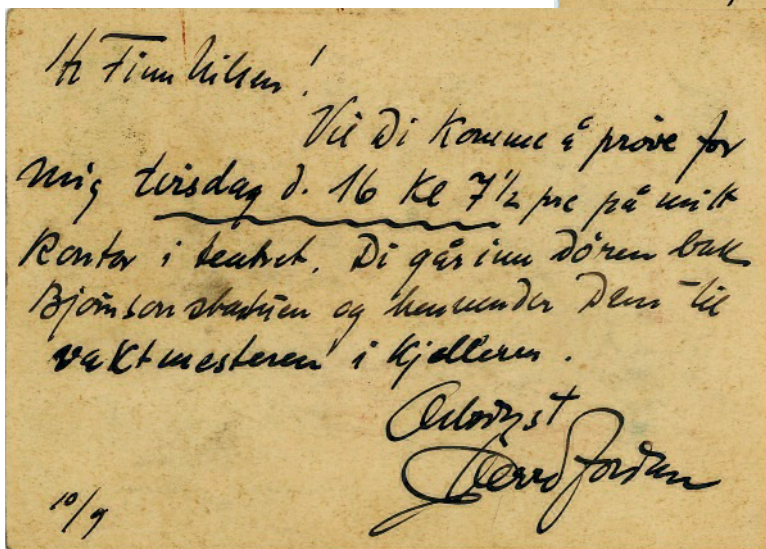 Hr Finn Nilsen!
Vil Di komme å prøve for
mig tirsdag d. 16 Kl 7½ pre på mitt
Kontor i teatret. Di går inn døren bak
Bjørnson statuen og henvender Dem til
vaktmesteren i Kjelleren.
Ærbødigst
Jordan
10/9